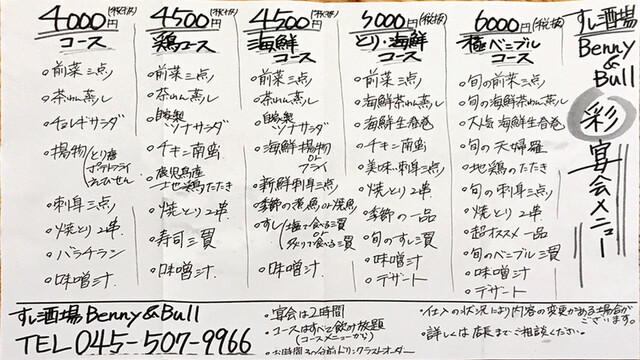 4000円(税抜)
コース
・前菜三点
・茶わん蒸し
・チョレギサラダ
・揚物(とり唐
ポテトフライ
えびせん
・刺身三点
・焼とり2串
・バラチラシ
・味噌汁
4500円(税抜)
鶏コース
・前菜三点
・茶わん蒸し
・自家製
ツナサラダ
・チキン南蛮
・鹿児島産
地鶏たたき
・焼とり2串
・寿司三貫
・味噌汁
4500円(税抜)
海鮮
コース
・前菜三点
・茶わん蒸し
・自家製
ツナサラダ
・海鮮揚物
or
フライ
・新鮮刺身三点
・季節の煮魚or焼魚
・すし(塩で食べる三貫
or
炙りで食べる三貫
・味噌汁
5000円(税抜)
とり・海鮮
コース
・前菜三点
・海鮮茶わん蒸し
・海鮮生春巻
・チキン南蛮
・美味刺身三点
・焼とり2串
・季節の一品
・旬のすし三貫
・味噌汁
・デザート
6000円(税抜)
極ベニブル
コース
・旬の前菜三点
・旬の海鮮茶わん蒸し
・大海老海鮮生春巻
・旬の天婦羅
・地鶏のたたき
・旬の刺身三点
・焼とり2串
・超オススメ一品
・旬のベニブル三貫
・味噌汁
・デザート
すし酒場
Benny
&
Bull
彩
宴会メニュー
すし酒場Benny&Bull
TEL 045-507-9966
・宴会は2時間
・コースはすべて飲み放題
(コースメニューから)
・お時間30分前ドリンクラストオーダー
・仕入の状況により内容の変更がある場合が
ございます。
・詳しくは店長までご相談ください。